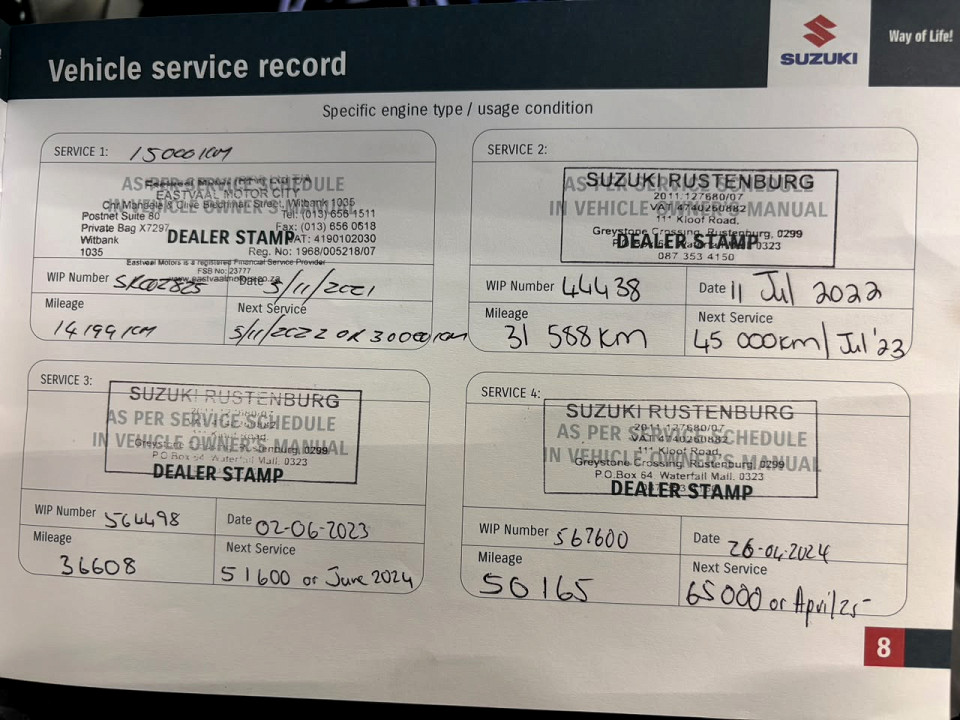 Vehicle service record
SUZUKI
Way of Life!
Specific engine type / usage condition
SERVICE 1: 15000 KM
AS PER SERVICE SCHEDULE
EASTVAAL MOTOR CITY
IN VEHICLE OWNER'S MANUAL
Street, Witbank 1035
Postnet Suite 80
Tel: (013) 656 1511
Private Bag X7297
Fax: (013) 656 0618
Witbank
DEALER STAMP
VAT: 4190102030
1035
Reg. No: 1968/005218/07
Eastvaal Motors is a registered Financial Service Provider
FSB No: 23777
www.eastvaalmotors.co.za
WIP Number
Date 5/11/2021
Mileage
14199 KM
Next Service
5/11/2022 OR 30000 KM
SERVICE 2:
SUZUKI RUSTENBURG
AS PER SERVICE SCHEDULE
2011.127680/07
VAT 4740260882
IN VEHICLE OWNER'S MANUAL
11" Kloof Road,
Greystone Crossing, Rustenburg, 0299
DEALER STAMP
0323
087 353 4150
WIP Number 44438
Date 11 Jul 2022
Mileage
31 588 km
Next Service
45 000km/Jul'23
SERVICE 3:
SUZUKI RUSTENBURG
AS PER SERVICE SCHEDULE
IN VEHICLE OWNER'S MANUAL
Greystone Crossing, Rustenburg, 0299
P.O.Box 64, Waterfall Mall, 0323
DEALER STAMP
WIP Number 564498
Date 02-06-2023
Mileage
36608
Next Service
51600 or June 2024
SERVICE 4:
SUZUKI RUSTENBURG
2011.127680/07
AS PER SERVICE SCHEDULE
VAT 4740260882
11" Kloof Road,
IN VEHICLE OWNER'S MANUAL
Greystone Crossing, Rustenburg, 0299
P.O.Box 64, Waterfall Mall, 0323
DEALER STAMP
WIP Number 567600
Date 26-04-2024
Mileage
50165
Next Service
65000 or April/25
8